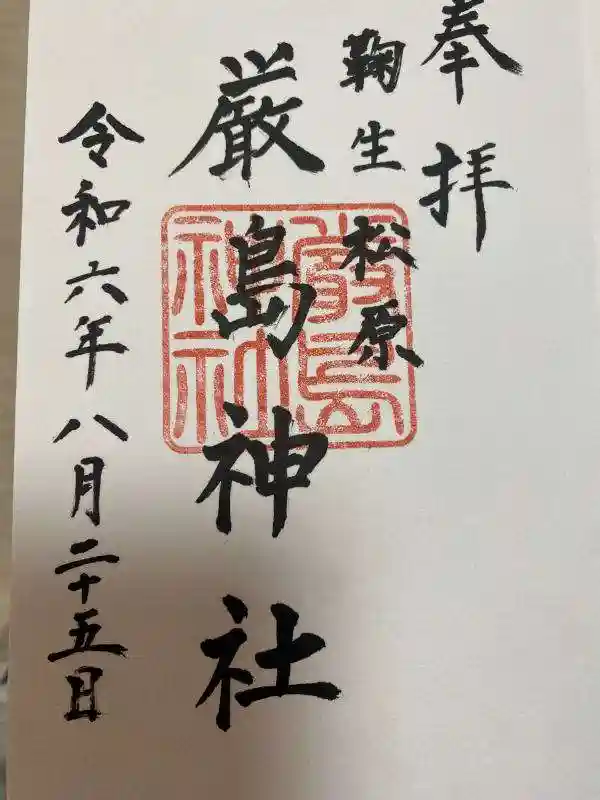 奉拝
鞠生松原
厳島神社
厳島神社
令和六年八月二十五日